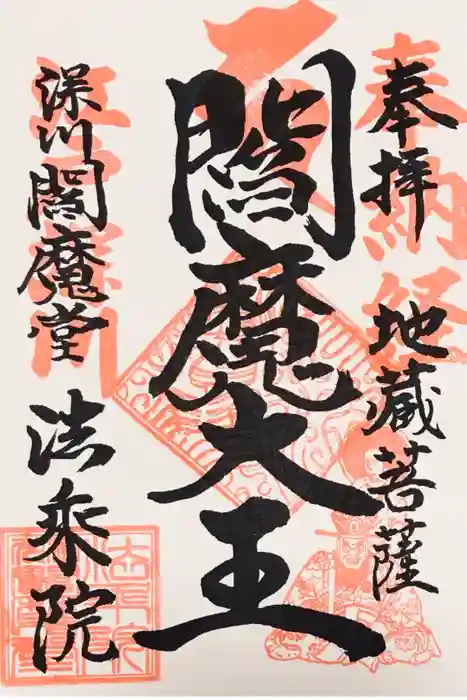 奉拝
地蔵菩薩
閻魔大王
深川閻魔堂
法乗院
奉納経